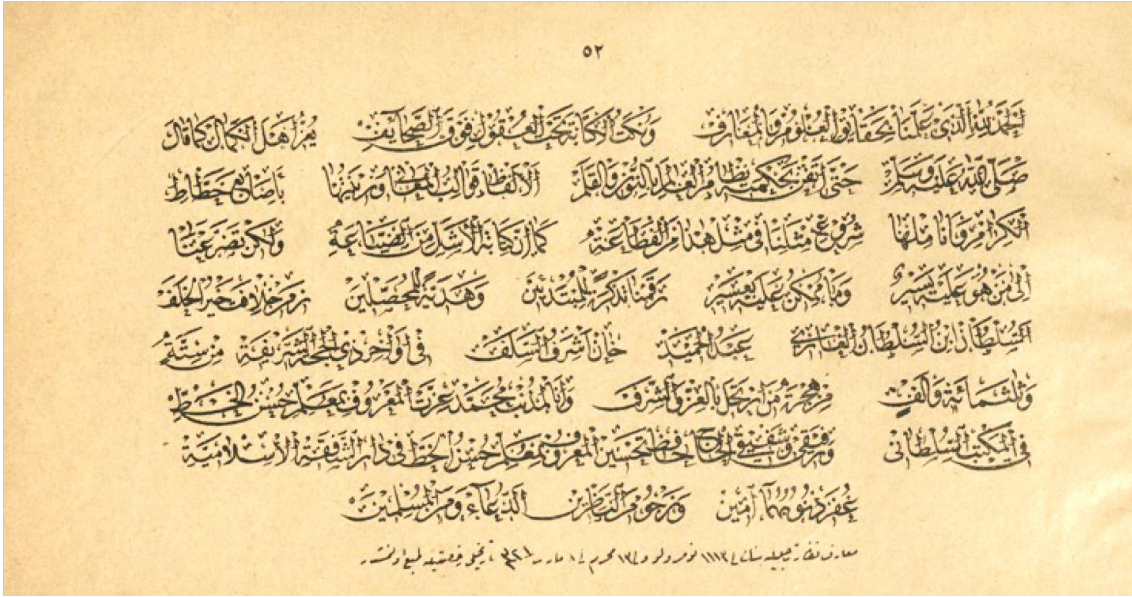 ٥٢
الحمد لله الذي علمنا بحقايق العلوم والمعارف ونكت الكتابة تحت العقول فوق الصحايف يمن اهل الكمال كما قال
صلى الله عليه وسلم حتى اتقن بحكمته نظام العالم بالنون والقلم الالفاظ قوالب المعانى وتزيينها باصلاح خطاط
الكرام واناملها شروع مثلنا فى مثل هذا من الفظاعة كما ان كتابة الاشل من الصناعة ولكن تضرعنا
الى من هو عليه يسير وما يمكن عليه بعسير رقمنا تذكرة للمبتدئين وهدية للمحصلين زمن خلافة خير الخلف
السلطان ابن السلطان الغازى عبد الحميد خان اشرف السلف فى اواخر ذى الحجة الشريفة من سنة
وثلثمائة والف من هجرة من ارتحل بالعز والشرف وانا المذنب محمد عزت المعروف بمعلم حسن الخط
فى المكتب السلطانى ورفيقى وشفيقى الحاج الحافظ تحسين المعروف بمعلم حسن الخط فى دار الشفقة الاسلامية
غفر ذنوبهما آمين ونرجو من الناظرين الدعاء ومن المسلمين
معارف نظارت جليله سنك ١١١٢ نومرولو و ١٣ محرم ١ مارت تاريخلى رخصتيله طبع اولنمشدر